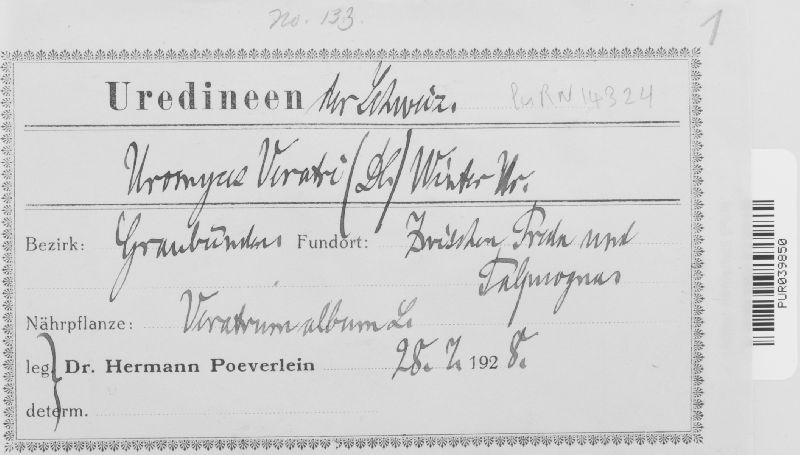 No. 133.
1
Uredineen der Schweiz.
Uromyces Veratri (DC.) Winter
Bezirk: Graubünden Fundort: Zwischen Preda und
Palpuogna
Nährpflanze: Veratrum album L.
leg. Dr. Hermann Poeverlein 28. 7. 1928.
determ.
PUR039850